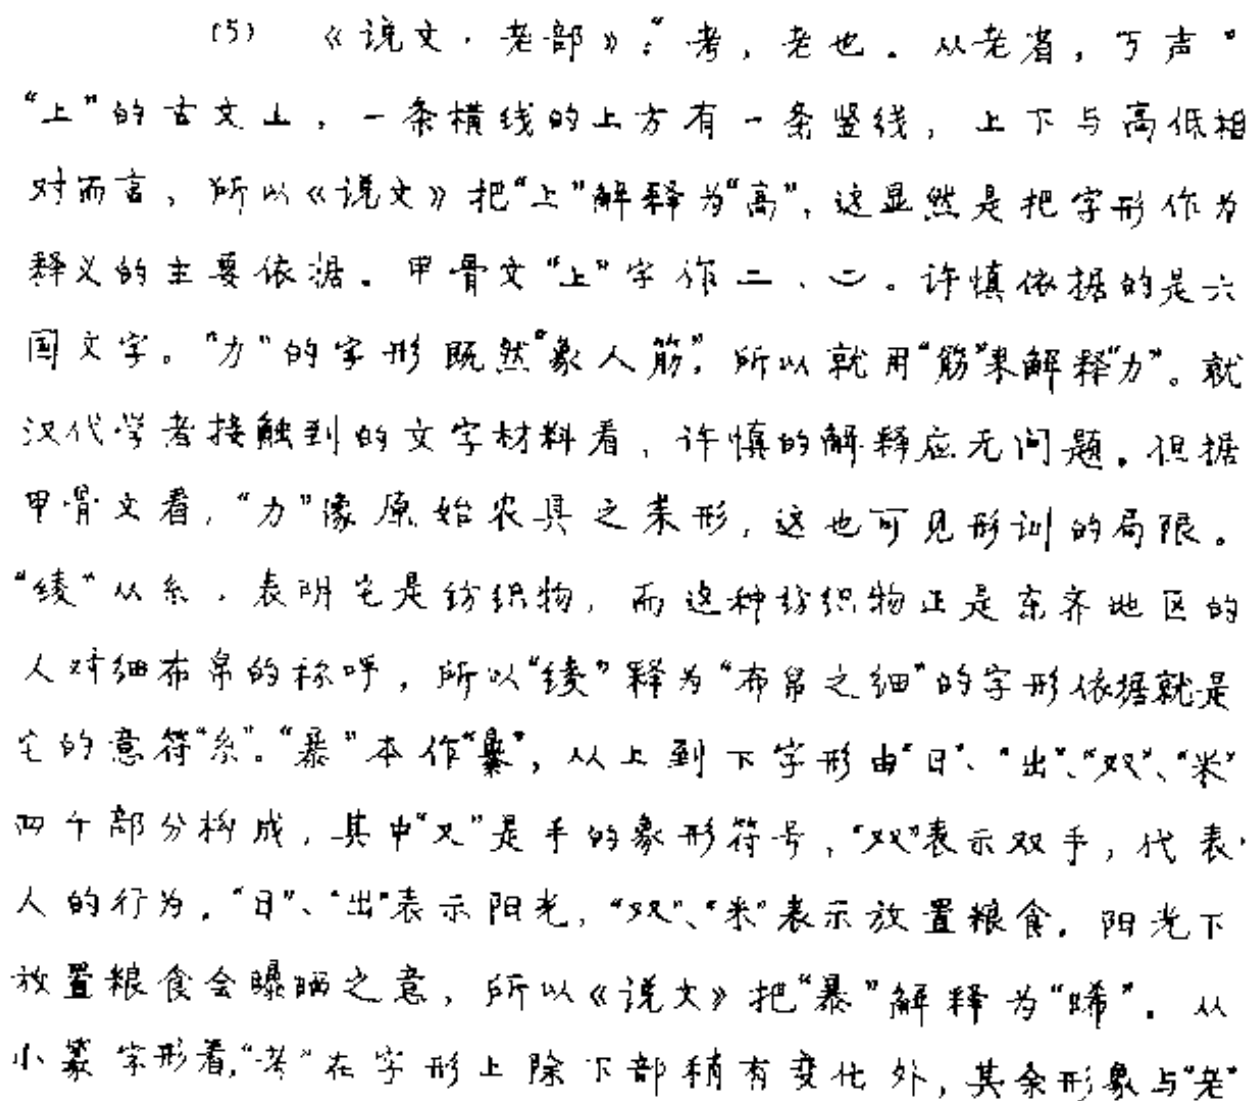 (5) 《说文·老部》：“考，老也。从老省，丂声”
“上”的古文丄，一条横线的上方有一条竖线，上下与高低相
对而言，所以《说文》把“上”解释为“高”，这显然是把字形作为
释义的主要依据。甲骨文“上”字作二、。许慎依据的是六
国文字。“力”的字形既然“象人筋”，所以就用“筋”来解释“力”。就
汉代学者接触到的文字材料看，许慎的解释应无问题。但据
甲骨文看，“力”像原始农具之耒形，这也可见形训的局限。
“绫”从糸，表明它是纺织物，而这种纺织物正是东齐地区的
人对细布帛的称呼，所以“绫”释为“布帛之细”的字形依据就是
它的意符“糸”。“暴”本作“㬥”，从上到下字形由“日”、“出”、“双”、“米”
四个部分构成，其中“又”是手的象形符号，“双”表示双手，代表
人的行为。“日”、“出”表示阳光，“双”、“米”表示放置粮食。阳光下
放置粮食会曝晒之意，所以《说文》把“暴”解释为“晞”。从
小篆字形看，“考”在字形上除下部稍有变化外，其余形象与“老”